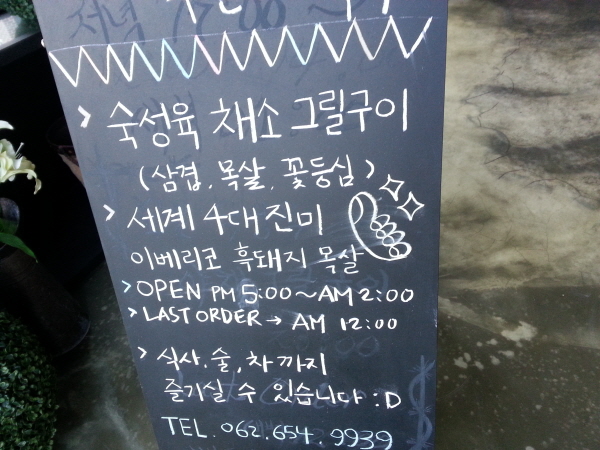 > 숙성육 채소 그릴구이
(삼겹. 목살. 꽃등심)
> 세계 4대 진미
이베리코 흑돼지 목살
> OPEN PM 5:00~AM 2:00
> LAST ORDER → AM 12:00
> 식사. 술, 차까지
즐기실 수 있습니다 :D
TEL. 062. 654. 9939